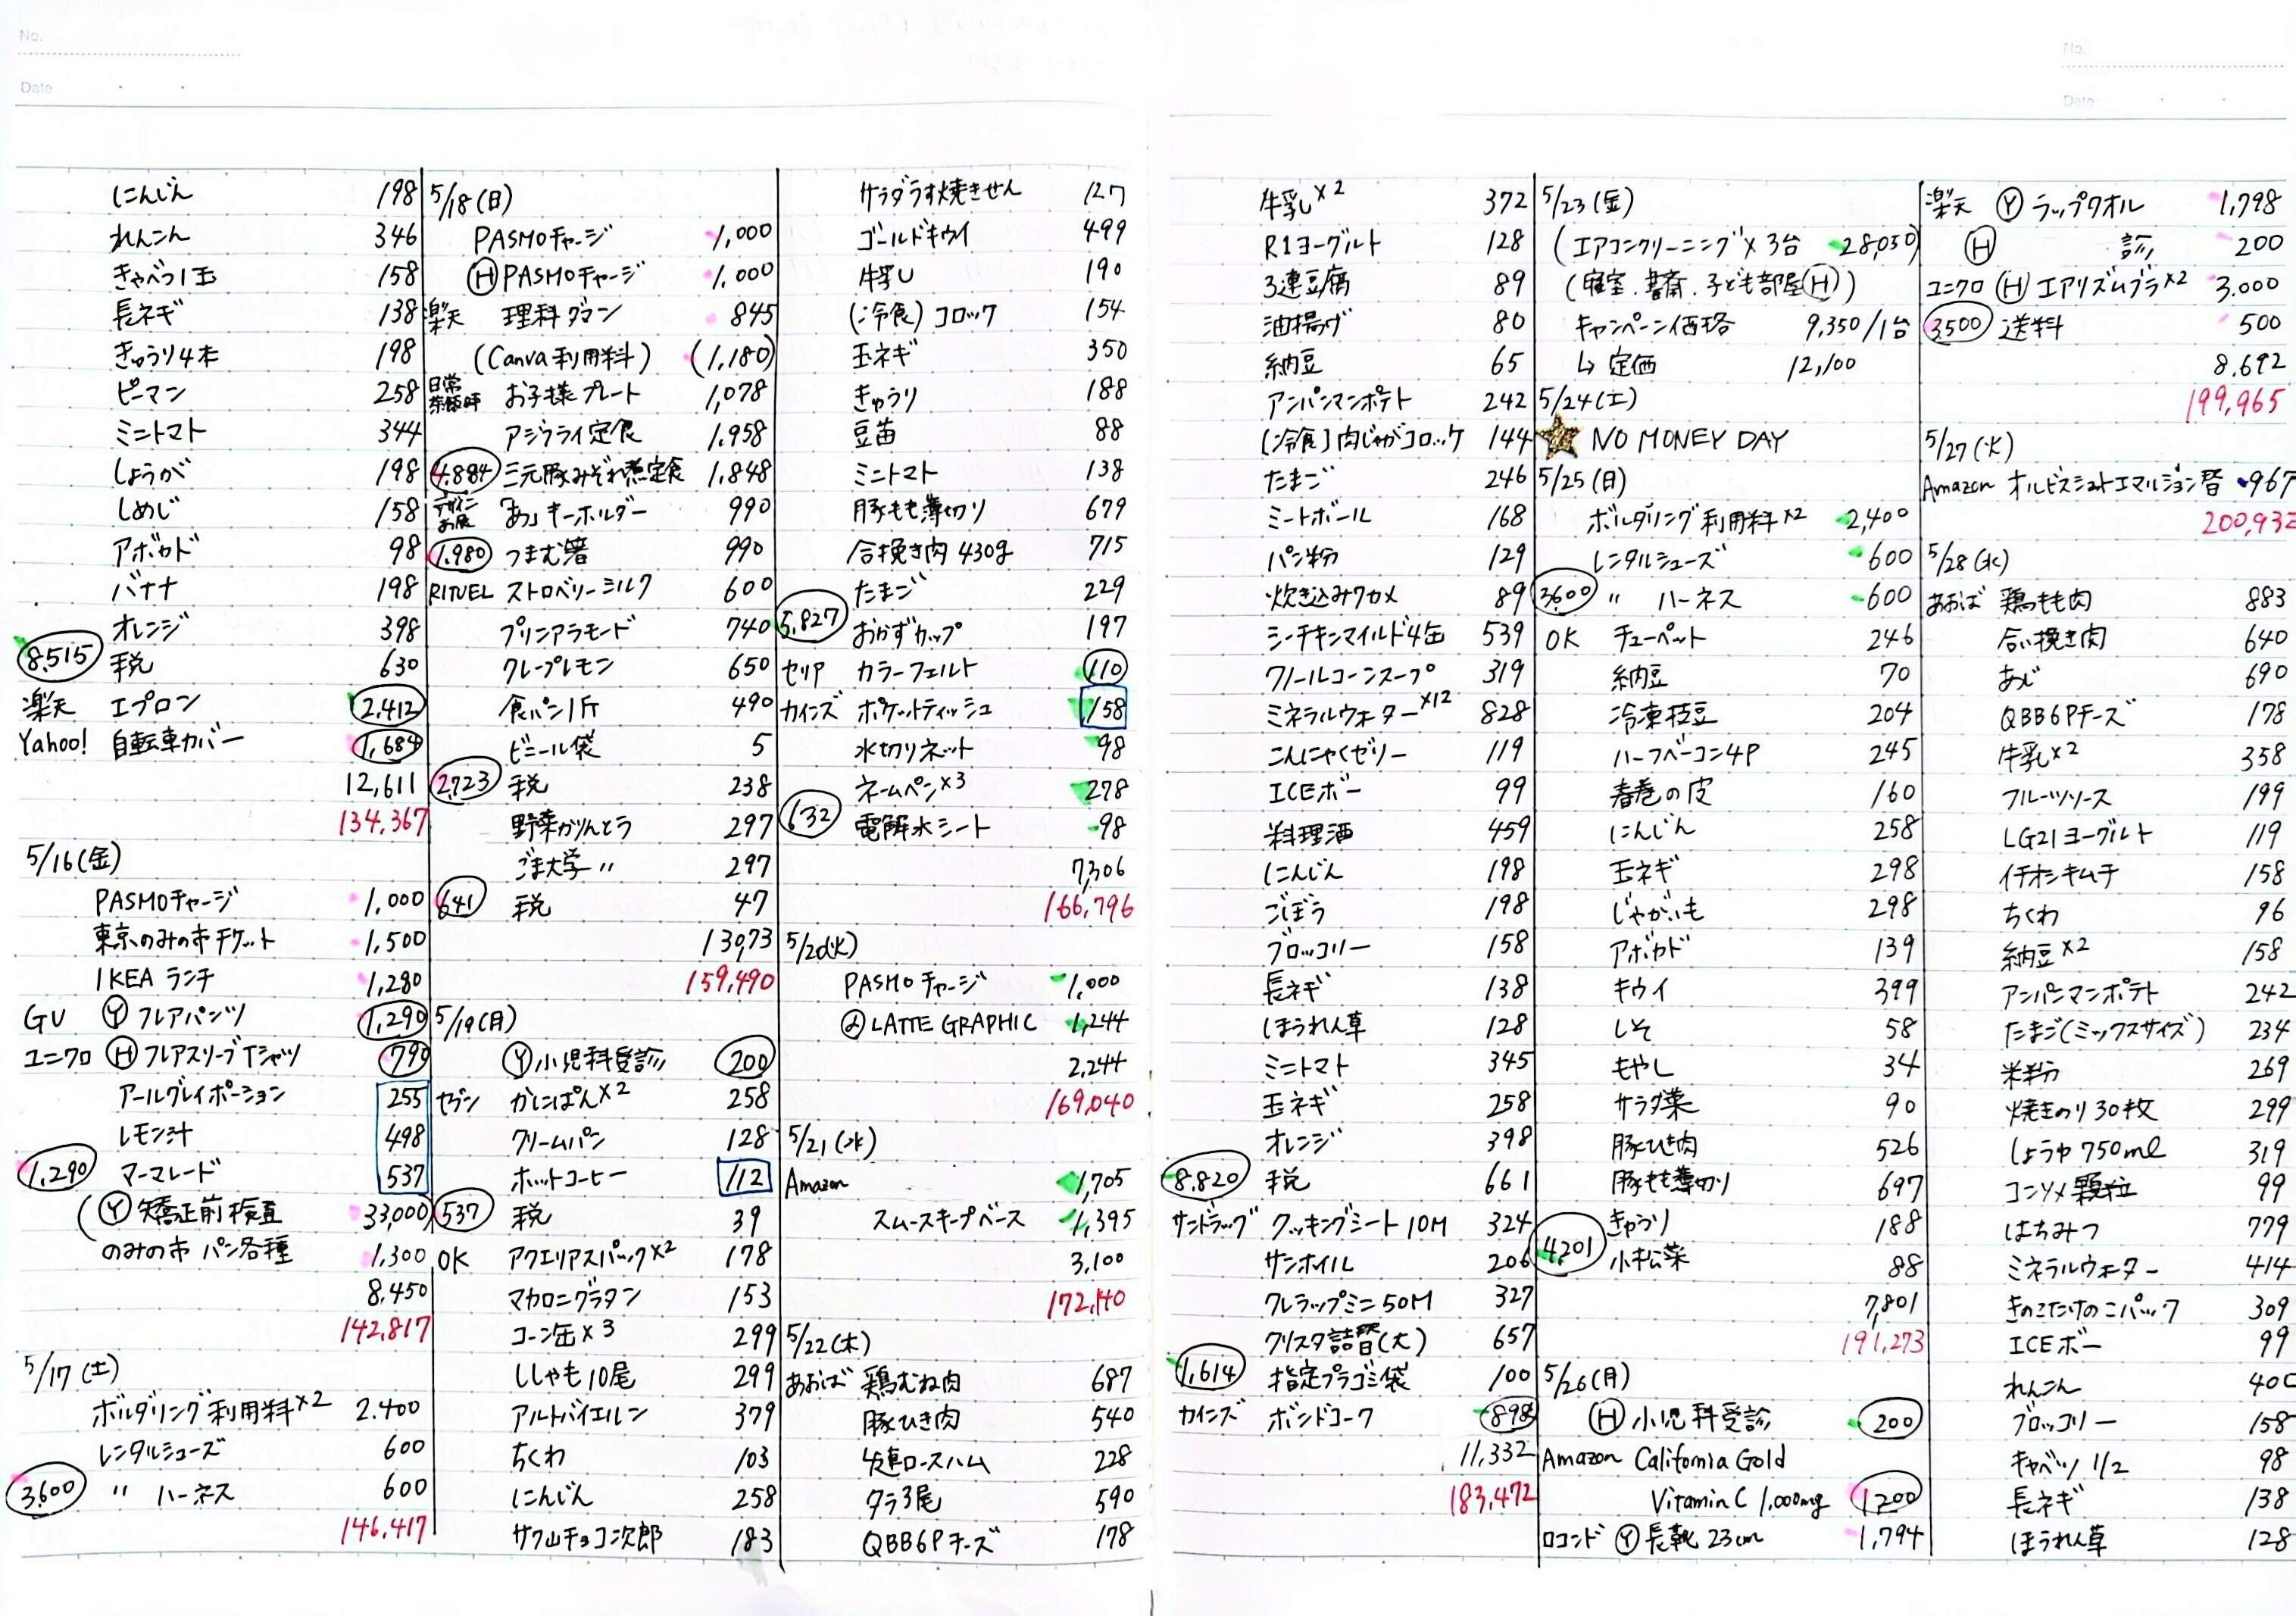 No.
Date
にんじん 198
れんこん 346
きゃべつ1玉 158
長ネギ 138
きゅうり4本 198
ピーマン 258
ミニトマト 344
しょうが 198
しめじ 158
アボカド 98
バナナ 198
オレンジ 398
8,515 税 630
楽天 エプロン 2,412
Yahoo! 自転車カバー 1,684
12,611
134,367
5/16(金)
PASMOチャージ 1,000
東京のみの市チケット 1,500
IKEA ランチ 1,280
GU Ⓨ フレアパンツ 1,290
ユニクロ Ⓗ フレアスリーブTシャツ 790
アールグレイポーション 255
レモン汁 498
1,290 マーマレード 537
(Ⓨ 矯正前検査 33,000)
のみの市 パン各種 1,300
8,450
142,817
5/17(土)
ボルダリング利用料×2 2,400
レンタルシューズ 600
3,600 〃 ハーネス 600
146,417
5/18(日)
PASMOチャージ 1,000
Ⓗ PASMOチャージ 1,000
楽天 理科ダマン 845
(Canva利用料) (1,180)
日常茶飯時 お子様プレート 1,078
アジフライ定食 1,958
4,884 三元豚みぞれ煮定食 1,848
デザインあ展 「あ」キーホルダー 990
1,980 つまむ箸 990
RITUEL ストロベリーミルク 600
プリンアラモード 740
クレープレモン 650
食パン1斤 490
ビニール袋 5
2,723 税 238
野菜かりんとう 297
ごま大学〃 297
641 税 47
13,073
159,490
5/19(月)
Ⓨ 小児科受診 200
セブン かにぱん×2 258
クリームパン 128
ホットコーヒー 112
537 税 39
OK アクエリアスパック×2 178
マカロニグラタン 153
コーン缶×3 299
ししゃも10尾 299
アルトバイエルン 379
ちくわ 103
にんじん 258
サク山チョコ次郎 183
サラダうす焼きせん 127
ゴールドキウイ 499
牛乳 190
(冷食)コロッケ 154
玉ネギ 350
きゅうり 188
豆苗 88
ミニトマト 138
豚もも薄切り 679
合挽き肉 430g 715
たまご 229
5,827 おかずカップ 197
セリア カラーフェルト 110
カインズ ポケットティッシュ 158
水切りネット 98
ネームペン×3 278
632 電解水シート 98
7,306
166,796
5/20(火)
PASMOチャージ 1,000
LATTE GRAPHIC 1,244
2,244
169,040
5/21(水)
Amazon 1,705
スムースキープベース 1,395
3,100
172,140
5/22(木)
あおば 鶏むね肉 687
豚ひき肉 540
4連ロースハム 228
タラ3尾 590
QBB6Pチーズ 178
No.
Date
牛乳×2 372
R1ヨーグルト 128
3連豆腐 89
油揚げ 80
納豆 65
アンパンマンポテト 242
(冷食)肉じゃがコロッケ 144
たまご 246
ミートボール 168
パン粉 129
炊き込みワカメ 89
シーチキンマイルド4缶 539
クノールコーンスープ 319
ミネラルウォーター×12 828
こんにゃくゼリー 119
ICEボー 99
料理酒 459
にんじん 198
ごぼう 198
ブロッコリー 158
長ネギ 138
ほうれん草 128
ミニトマト 345
玉ネギ 258
オレンジ 398
8,820 税 661
サンドラッグ クッキングシート10M 324
サンホイル 206
クレラップミニ50M 327
クリスタ詰替(大) 657
1,614 指定プラゴミ袋 100
カインズ ボンドコーク 898
11,332
183,472
5/23(金)
(エアコンクリーニング×3台 28,050)
(寝室.書斎.子ども部屋Ⓗ)
キャンペーン価格 9,350/1台
↳定価 12,100
5/24(土)
NO MONEY DAY
5/25(日)
ボルダリング利用料×2 2,400
レンタルシューズ 600
3,600 〃 ハーネス 600
OK チューペット 246
納豆 70
冷凍枝豆 204
ハーフベーコン4P 245
春巻の皮 160
にんじん 258
玉ネギ 298
じゃがいも 298
アボカド 139
キウイ 399
しそ 58
もやし 34
サラダ菜 90
豚ひき肉 526
豚もも薄切り 697
きゅうり 188
4,201 小松菜 88
7,801
191,273
5/26(月)
Ⓗ 小児科受診 200
Amazon California Gold
Vitamin C 1,000mg 1,200
ロコンド Ⓨ 長靴 23cm 1,794
楽天 Ⓨ ラップタオル 1,798
Ⓗ 〃 200
ユニクロ Ⓗ エアリズムブラ×2 3,000
3,500 送料 500
8,692
199,965
5/27(火)
Amazon オルビスシュトエマルジョン替 967
200,932
5/28(水)
あおば 鶏もも肉 883
合い挽き肉 640
あじ 690
QBB6Pチーズ 178
牛乳×2 358
フルーツソース 199
LG21ヨーグルト 119
イチオシキムチ 158
ちくわ 96
納豆×2 158
アンパンマンポテト 242
たまご(ミックスサイズ) 234
米粉 269
焼きのり30枚 299
しょうゆ750ml 319
コンソメ顆粒 99
はちみつ 779
ミネラルウォーター 414
きのこたけのこパック 309
ICEボー 99
れんこん 400
ブロッコリー 158
キャベツ1/2 98
長ネギ 138
ほうれん草 128